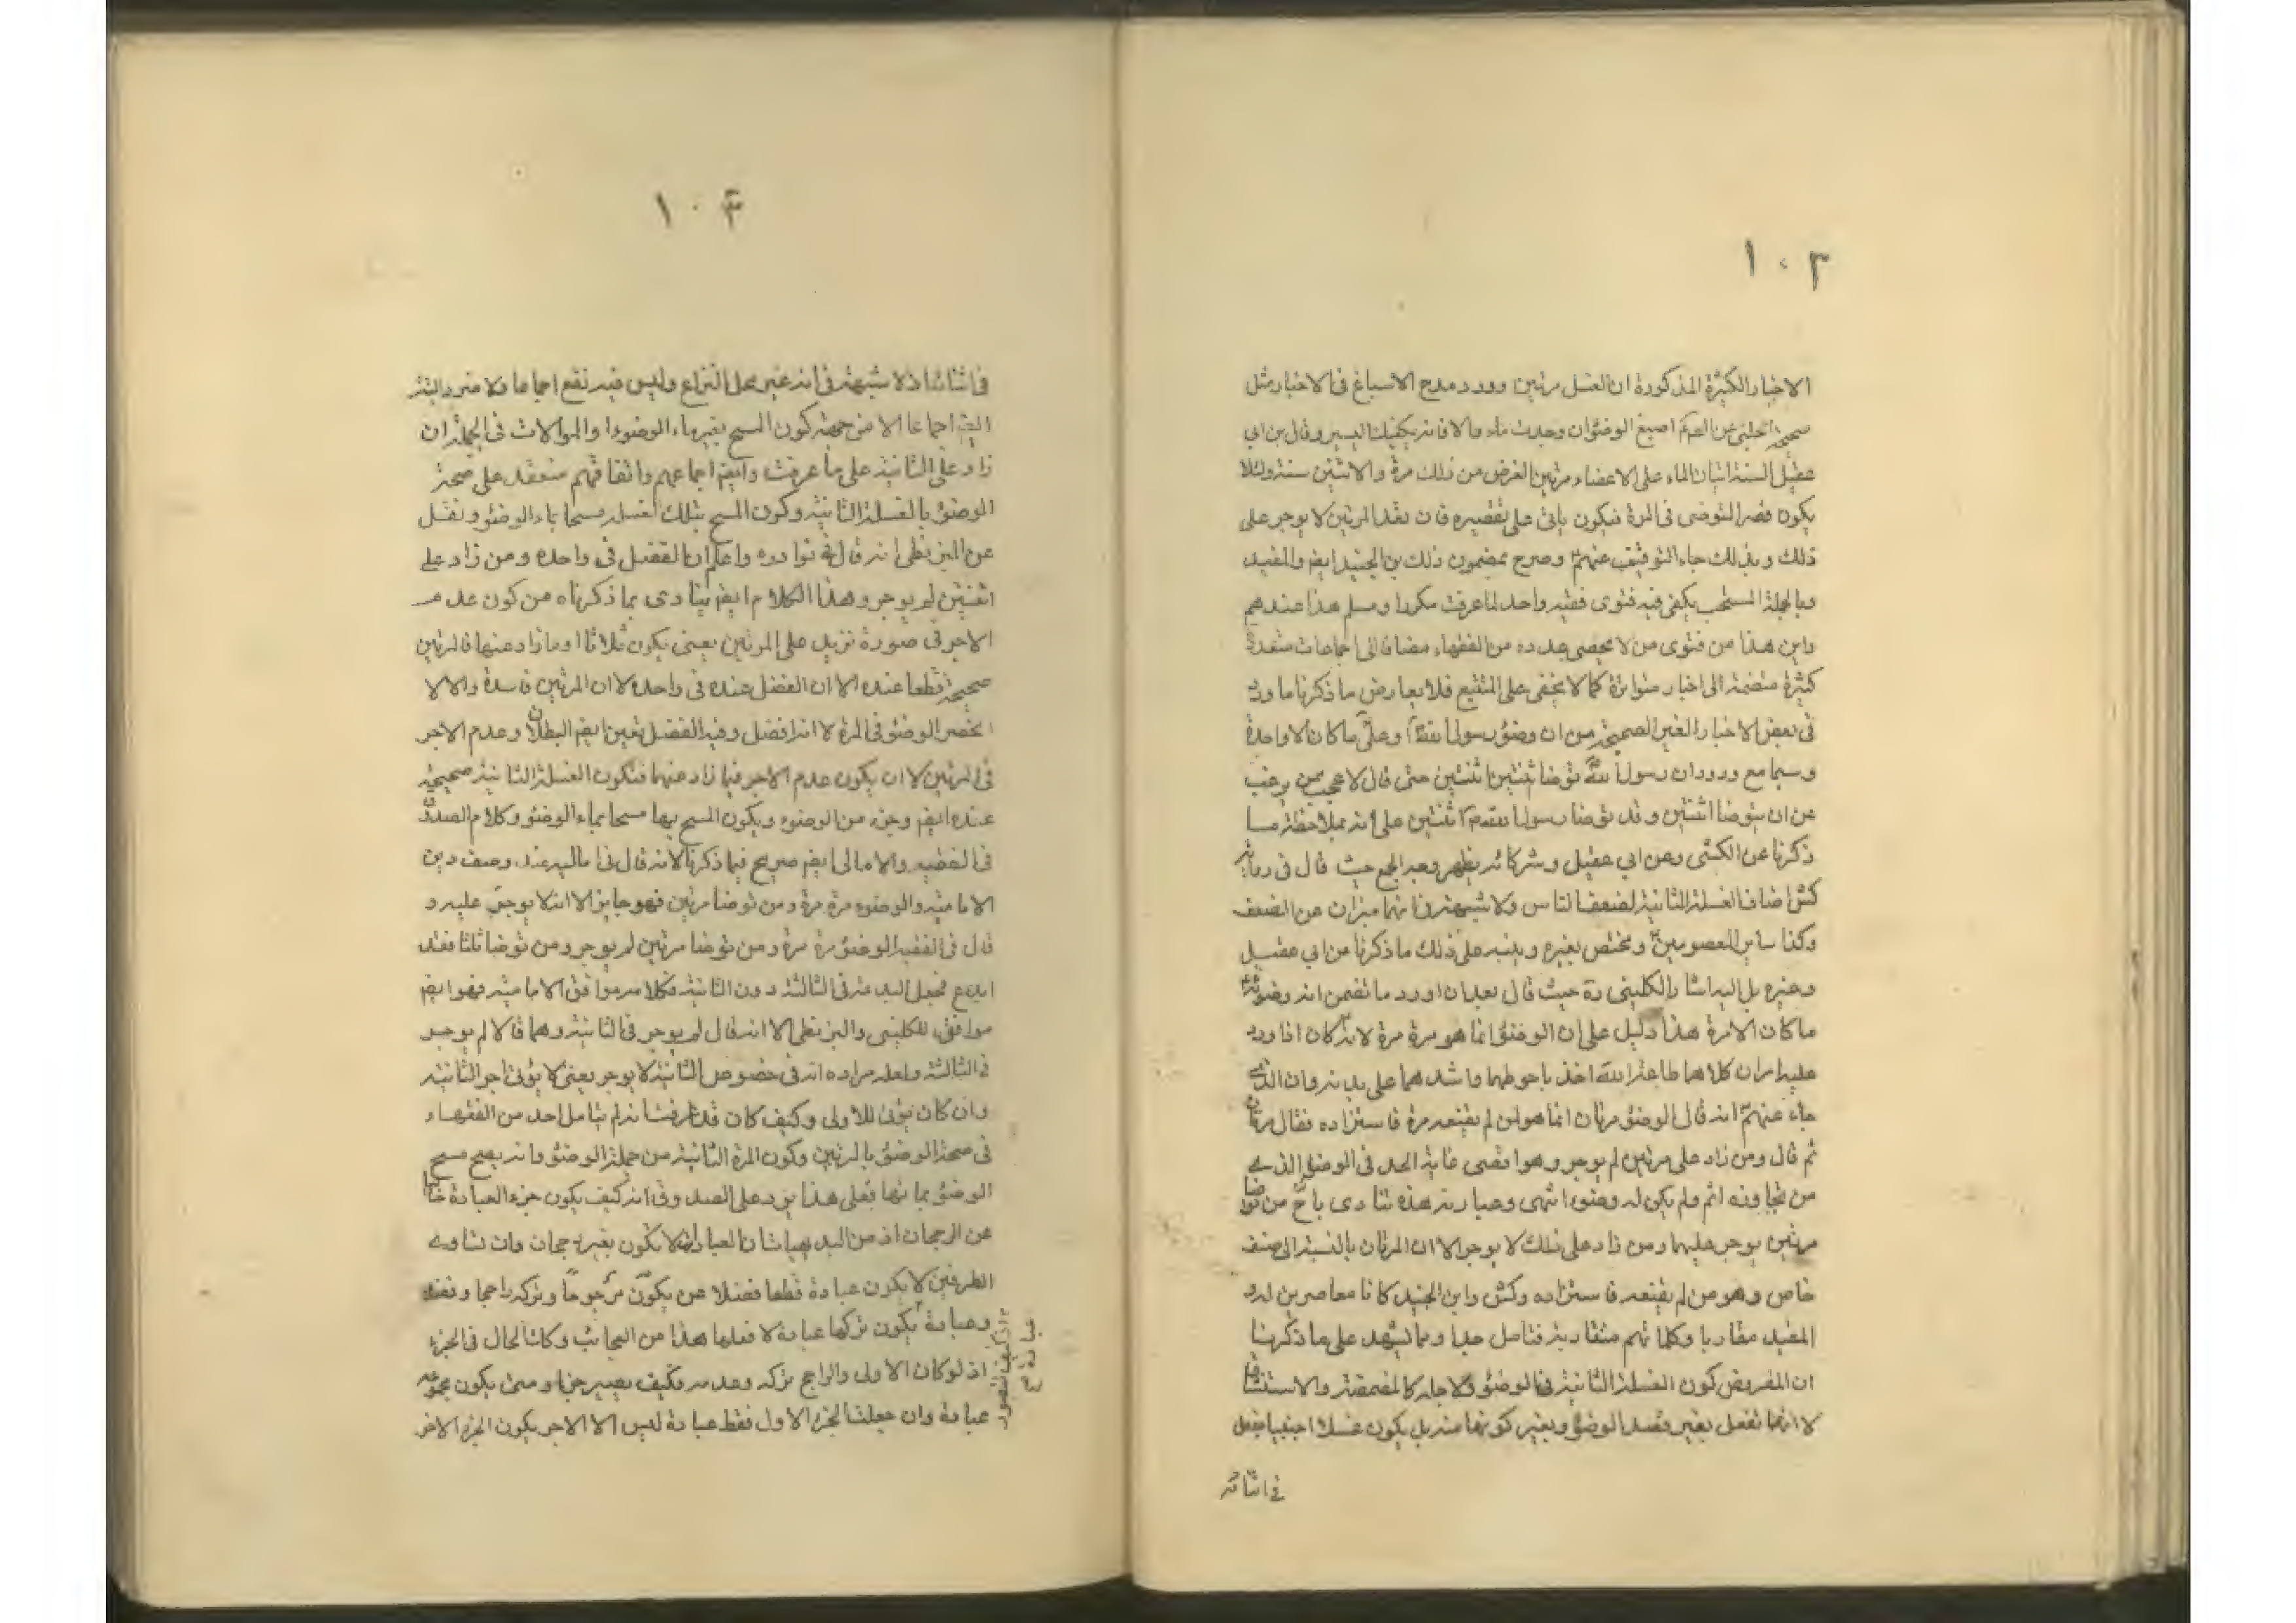 ١٠٣
الاخبار الكثيرة المذكورة ان الغسل مرتين وورد مدح الاسباغ فى الاخبار مثل
صحيحة الحلبى عن اصبغ الوضوء ان وجدت ماء والا فانه يكفيك اليسير وقال بن ابى
عقيل السنة اتيان الماء على الاعضاء مرتين الفرض من ذلك مرة والاثنتين سنة ولئلا
يكون قصر المتوضى فى المرة فيكون ياتى على تقصيره فان تعد المرتين لا يوجر على
ذلك وبذلك جاء التوقيف عنهمؑ وصرح بمضمون ذلك بن الجنيد ايضم والمفيد
وبالجملة المستحب يكفى فيه فتوى فقيه واحد لما عرفت مكررا ومسلم هذا عندهم
واين هذا من فتوى من لا يحصى عدده من الفقهاء مضافا الى اجماعات متعددة
كثيرة منضمة الى اخبار متواترة كما لا يخفى على المتتبع فلا يعارض ما ذكرنا ما ورد
فى بعض الاخبار الغير الصحيحة من ان وضوء رسول وعلىؑ ما كان الا واحدة
وسيما مع ورود ان رسول اللهؐ توضا ثنتين اثنتين حتى قال لا عجب ممن يرغب
عن ان يتوضا اثنتين وقد توضا رسول اثنتين على انه بملاحظة ما
ذكرنا عن الكشى وعن ابى عقيل وشركائه يظهر وجه الجمع حيث قال فى
كش اضاف الغسلة الثانية لضعف الناس ولا شبهة فى انهما مبران عن الضعف
وكذا ساير المعصومينؑ ومختص بغيره وينبه على ذلك ما ذكرنا من ابى عقيل
وغيره بل اليه اشار الكلينى ره حيث قال بعد ان اورد ما تضمن ان وضوئهؑ
ما كان الا مرة هذا دليل على ان الوضوء انما هو مرة مرة لانه كان اذا ورد
عليه امران كلاهما طاعة الله اخذ باحوطهما واشدهما على بدنه وان الذى
جاء عنهمؑ انه قال الوضوء مرتان انما هو لمن لم يقنعه مرة فاستزاده فقال مرتان
ثم قال ومن زاد على مرتين لم يوجر وهو اقصى غاية الحد فى الوضوء الذى
من تجاوزه اثم ولم يكن له وضوء انتهى وعبارته هذه تنادى بان من توضا
مرتين يوجر عليهما ومن زاد على ذلك لا يوجر الا ان المرتان بالنسبة الى صنف
خاص وهو من لم يقنعه فاستزاده وكش وابن الجنيد كانا معاصرين له و
المفيد مقاربا وكلماتهم متقاربة فتامل جدا ومما يشهد على ما ذكرنا
ان المفروض كون الغسلة الثانية فى الوضوء ولاجله كالمضمضة والاستنشاق
لا انها تفعل بغير قصد الوضوء وبغير كونها منه بل يكون غسلا اجنبيا يفعل
فى اثنائه
١٠۴
فى اثنائه اذ لا شبهة فى انه غير محل النزاع وليس فيه نقع اجماعا ولا ضرر البتة
ايضم اجماعا الا من جهة كون المسح بغير ماء الوضوء والموالات فى الجملة ان
زاد على الثانية على ما عرفت وايضم اجماعهم واتفاقهم منعقد على صحة
الوضوء بالغسلة الثانية وكون المسح بتلك الغسلة مسحا بماء الوضوء ونقل
عن البزنطى انه قال فى نوادره واعلم ان الفضل فى واحدة ومن زاد على
اثنتين لم يوجر وهذا الكلام ايضم ينادى بما ذكرناه من كون عدم
الاجر فى صورة تزيد على المرتين يعنى يكون ثلاثا او ما زاد عنها فالمرتين
صحيحة قطعا عنده الا ان الفضل عنده فى واحدة لا ان المرتين فاسدة والا لا
نحصر الوضوء فى المرة لا انه افضل وفيه الفضل تعين ايضم البطلان وعدم الاجر
فى المرتين لا ان يكون عدم الاجر فيما زاد عنهما فتكون الغسلة الثانية صحيحة
عنده ايضم وجزء من الوضوء ويكون المسح بها مسحا بماء الوضوء وكلام الصدوق
فى الفقيه والامالى ايضم صريح فيما ذكرنا لانه قال فى اماليه عند وصف دين
الامامية والوضوء مرة مرة ومن توضا مرتين فهو جايز الا انه لا يوجر عليه و
قال فى الفقيه الوضوء مرة مرة ومن توضا مرتين لم يوجر ومن توضا ثلثا فقد
ابدع فجعل البدعة فى الثالثة دون الثانية فكلامه موافق الامامية فهو ايضم
موافق للكلينى والبزنطى الا انه قال لم يوجر فى الثانية وهما قالا لم يوجر
فى الثالثة ولعله مراده انه فى خصوص الثانية لا يوجر يعنى لا يؤتى اجر الثانية
وان كان يؤتى للاولى وكيف كان قد عرفت انه لم يتامل احد من الفقهاء
فى صحة الوضوء بالمرتين وكون المرة الثانية من جملة الوضوء وانه يصح مسح
الوضوء بمائها فعلى هذا يرد على الصدوق انه كيف يكون جزء العبادة خاليا
عن الرجحان اذ من البديهيات ان العبادة لا تكون بغير رجحان وان تساوى
الطرفين لا يكون عبادة قطعا فضلا عن يكون مرجوحا وتركه راجحا وفعله
وعبادة يكون تركها عبادة لا فعلها هذا من العجائب وكان الحال فى الجزء
اذ لو كان الاولى والراجح تركه وعدمه فكيف يصير جزءا ومتى يكون مجموعه
عبادة وان جعلت الجزء الاول فقط عبادة ليس الا الاجر يكون الجزء الاخر
اذ كيف يتصور
عبادة ح